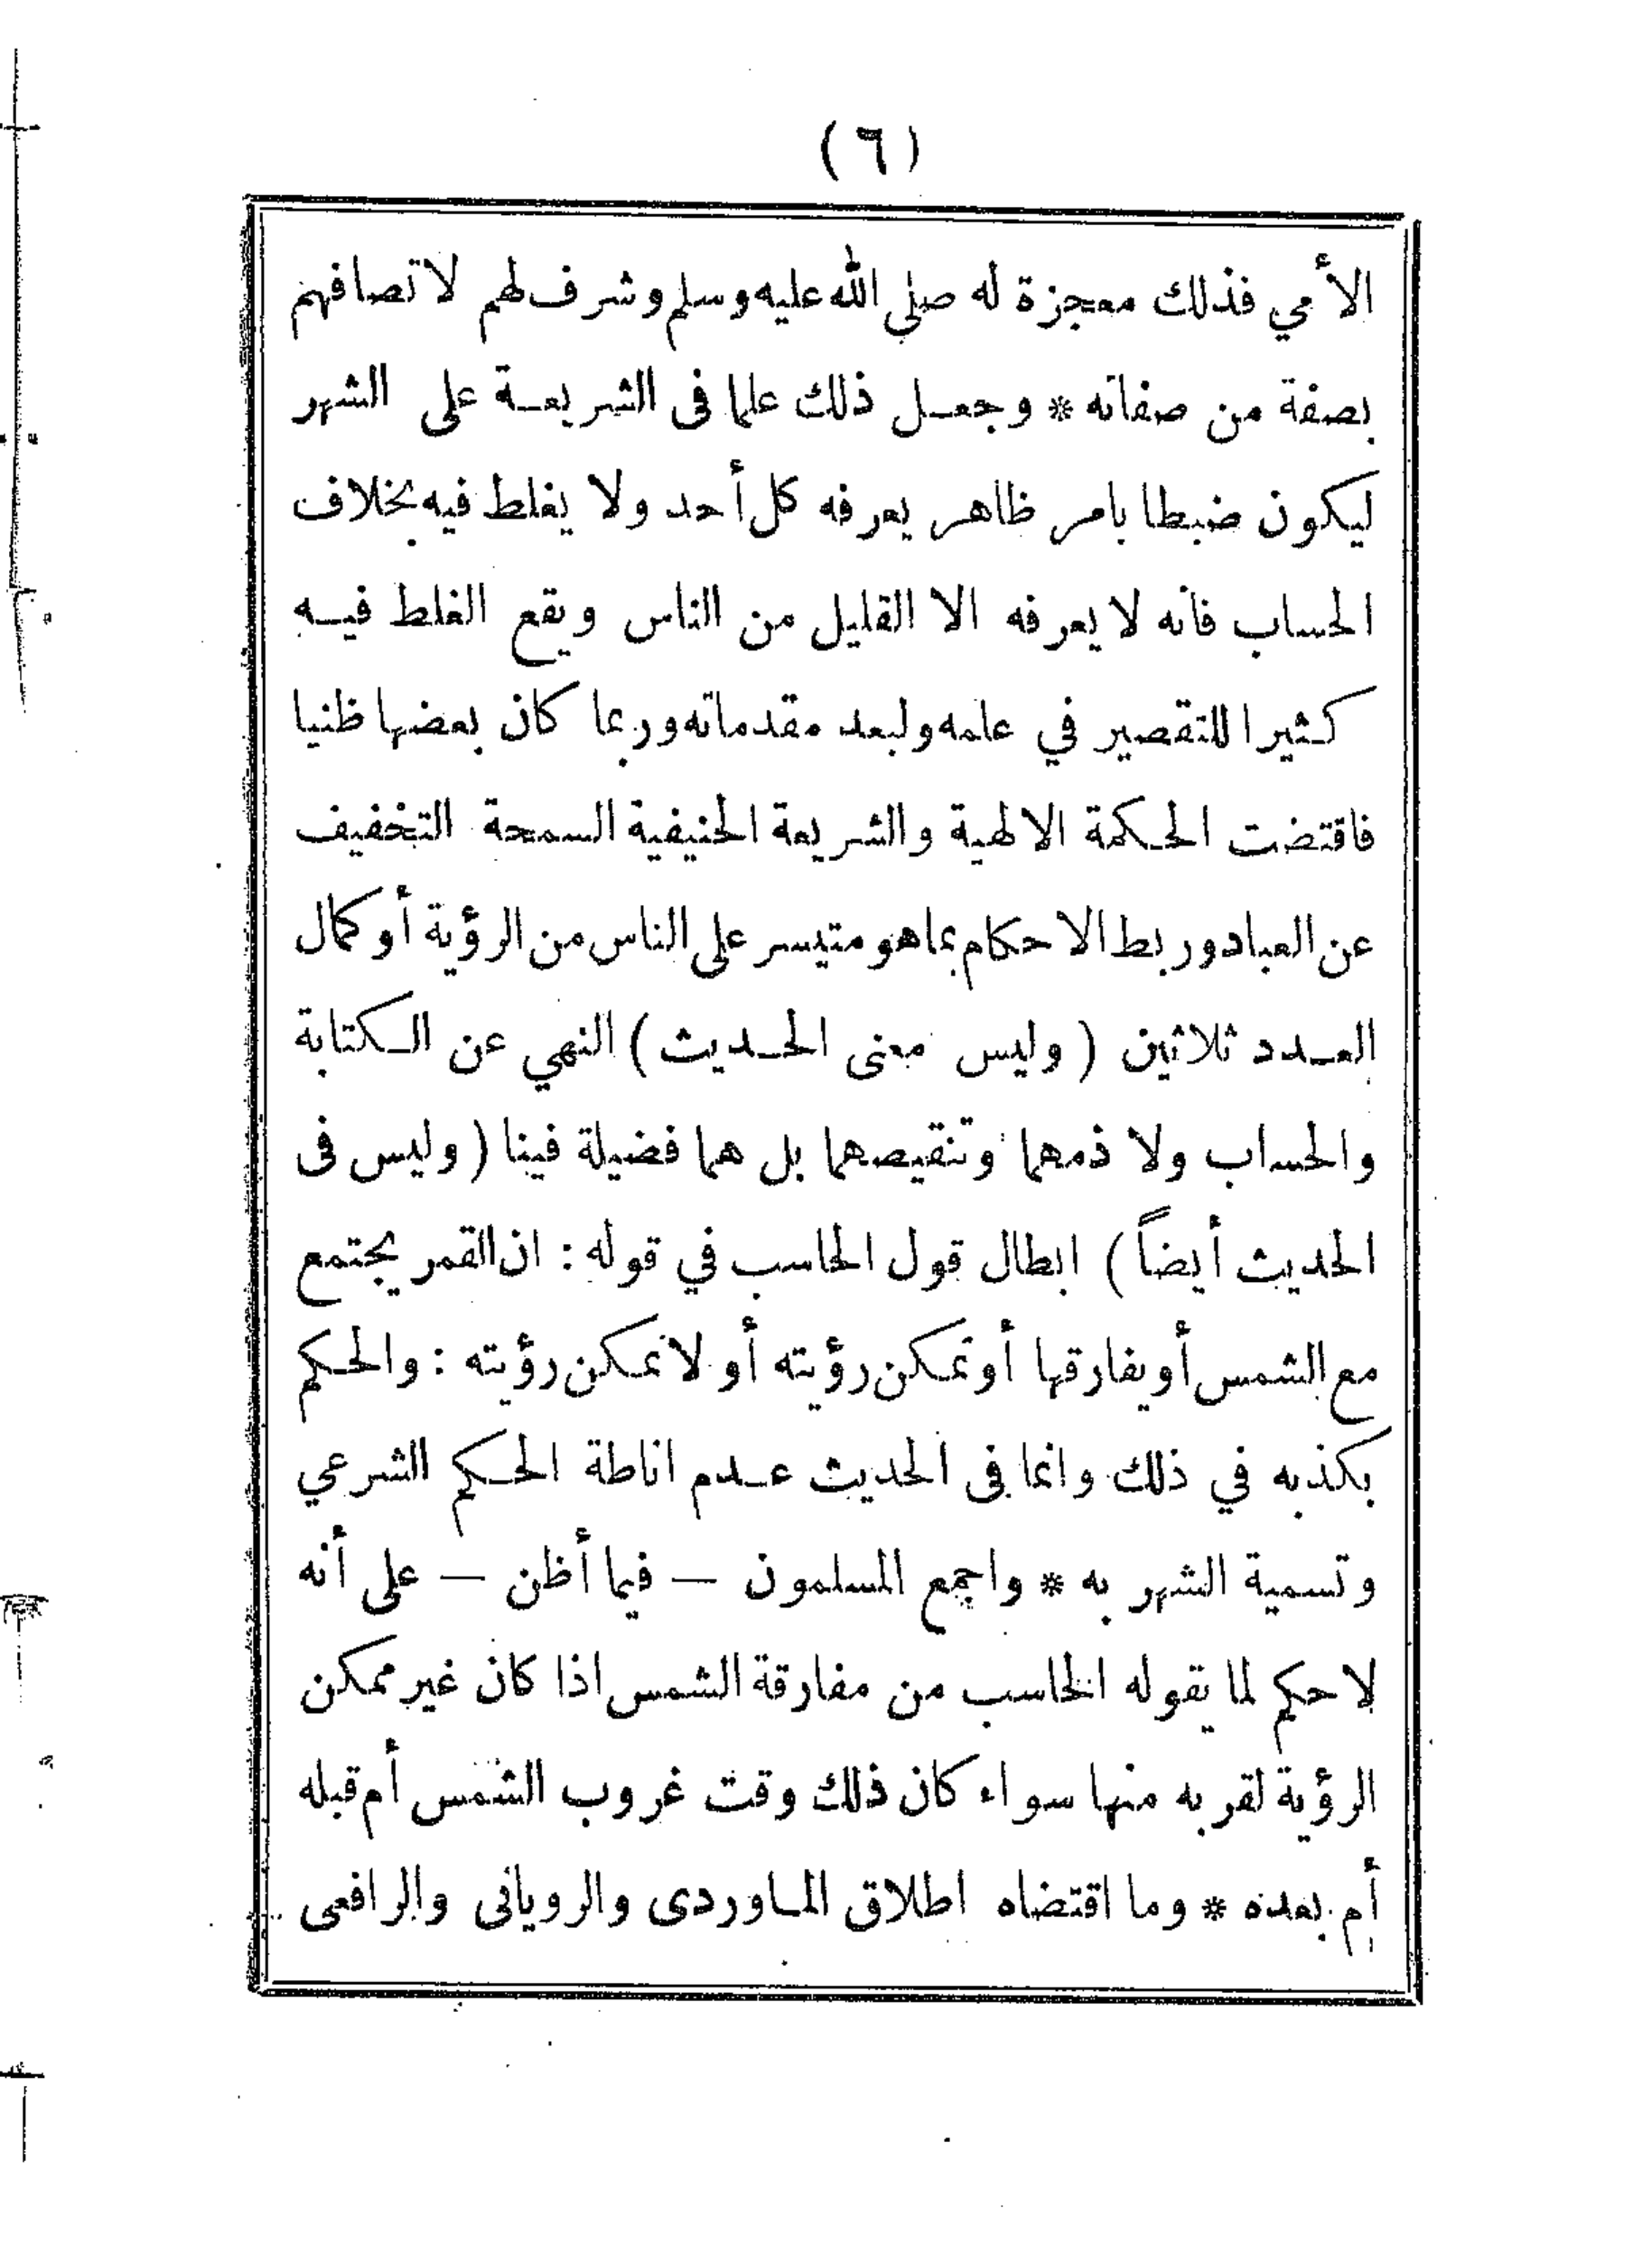 (٦)
الأمي فذلك معجزة له صلى الله عليه وسلم وشرف لهم لاتصافهم
بصفة من صفاته * وجعل ذلك علما فى الشريعة على الشهر
ليكون ضبطا بامر ظاهر يعرفه كل أحد ولا يغلط فيه بخلاف
الحساب فانه لا يعرفه الا القليل من الناس ويقع الغلط فيه
كثيرا للتقصير في علمه ولبعد مقدماته وربما كان بعضها ظنيا
فاقتضت الحكمة الالهية والشريعة الحنيفية السمحة التخفيف
عن العباد وربط الاحكام بما هو متيسر على الناس من الرؤية أو كمال
العدد ثلاثين ( وليس معنى الحديث ) النهي عن الكتابة
والحساب ولا ذمهما وتنقيصهما بل هما فضيلة فينا ( وليس فى
الحديث أيضاً ) ابطال قول الحاسب في قوله : ان القمر يجتمع
مع الشمس أو يفارقها أو تمكن رؤيته أو لا تمكن رؤيته : والحكم
بكذبه في ذلك وانما فى الحديث عدم اناطة الحكم الشرعي
وتسمية الشهر به * واجمع المسلمون — فيما أظن — على أنه
لا حكم لما يقوله الحاسب من مفارقة الشمس اذا كان غير ممكن
الرؤية لقربه منها سواء كان ذلك وقت غروب الشمس أم قبله
أم بعده * وما اقتضاه اطلاق الماوردى والرويانى والرافعى